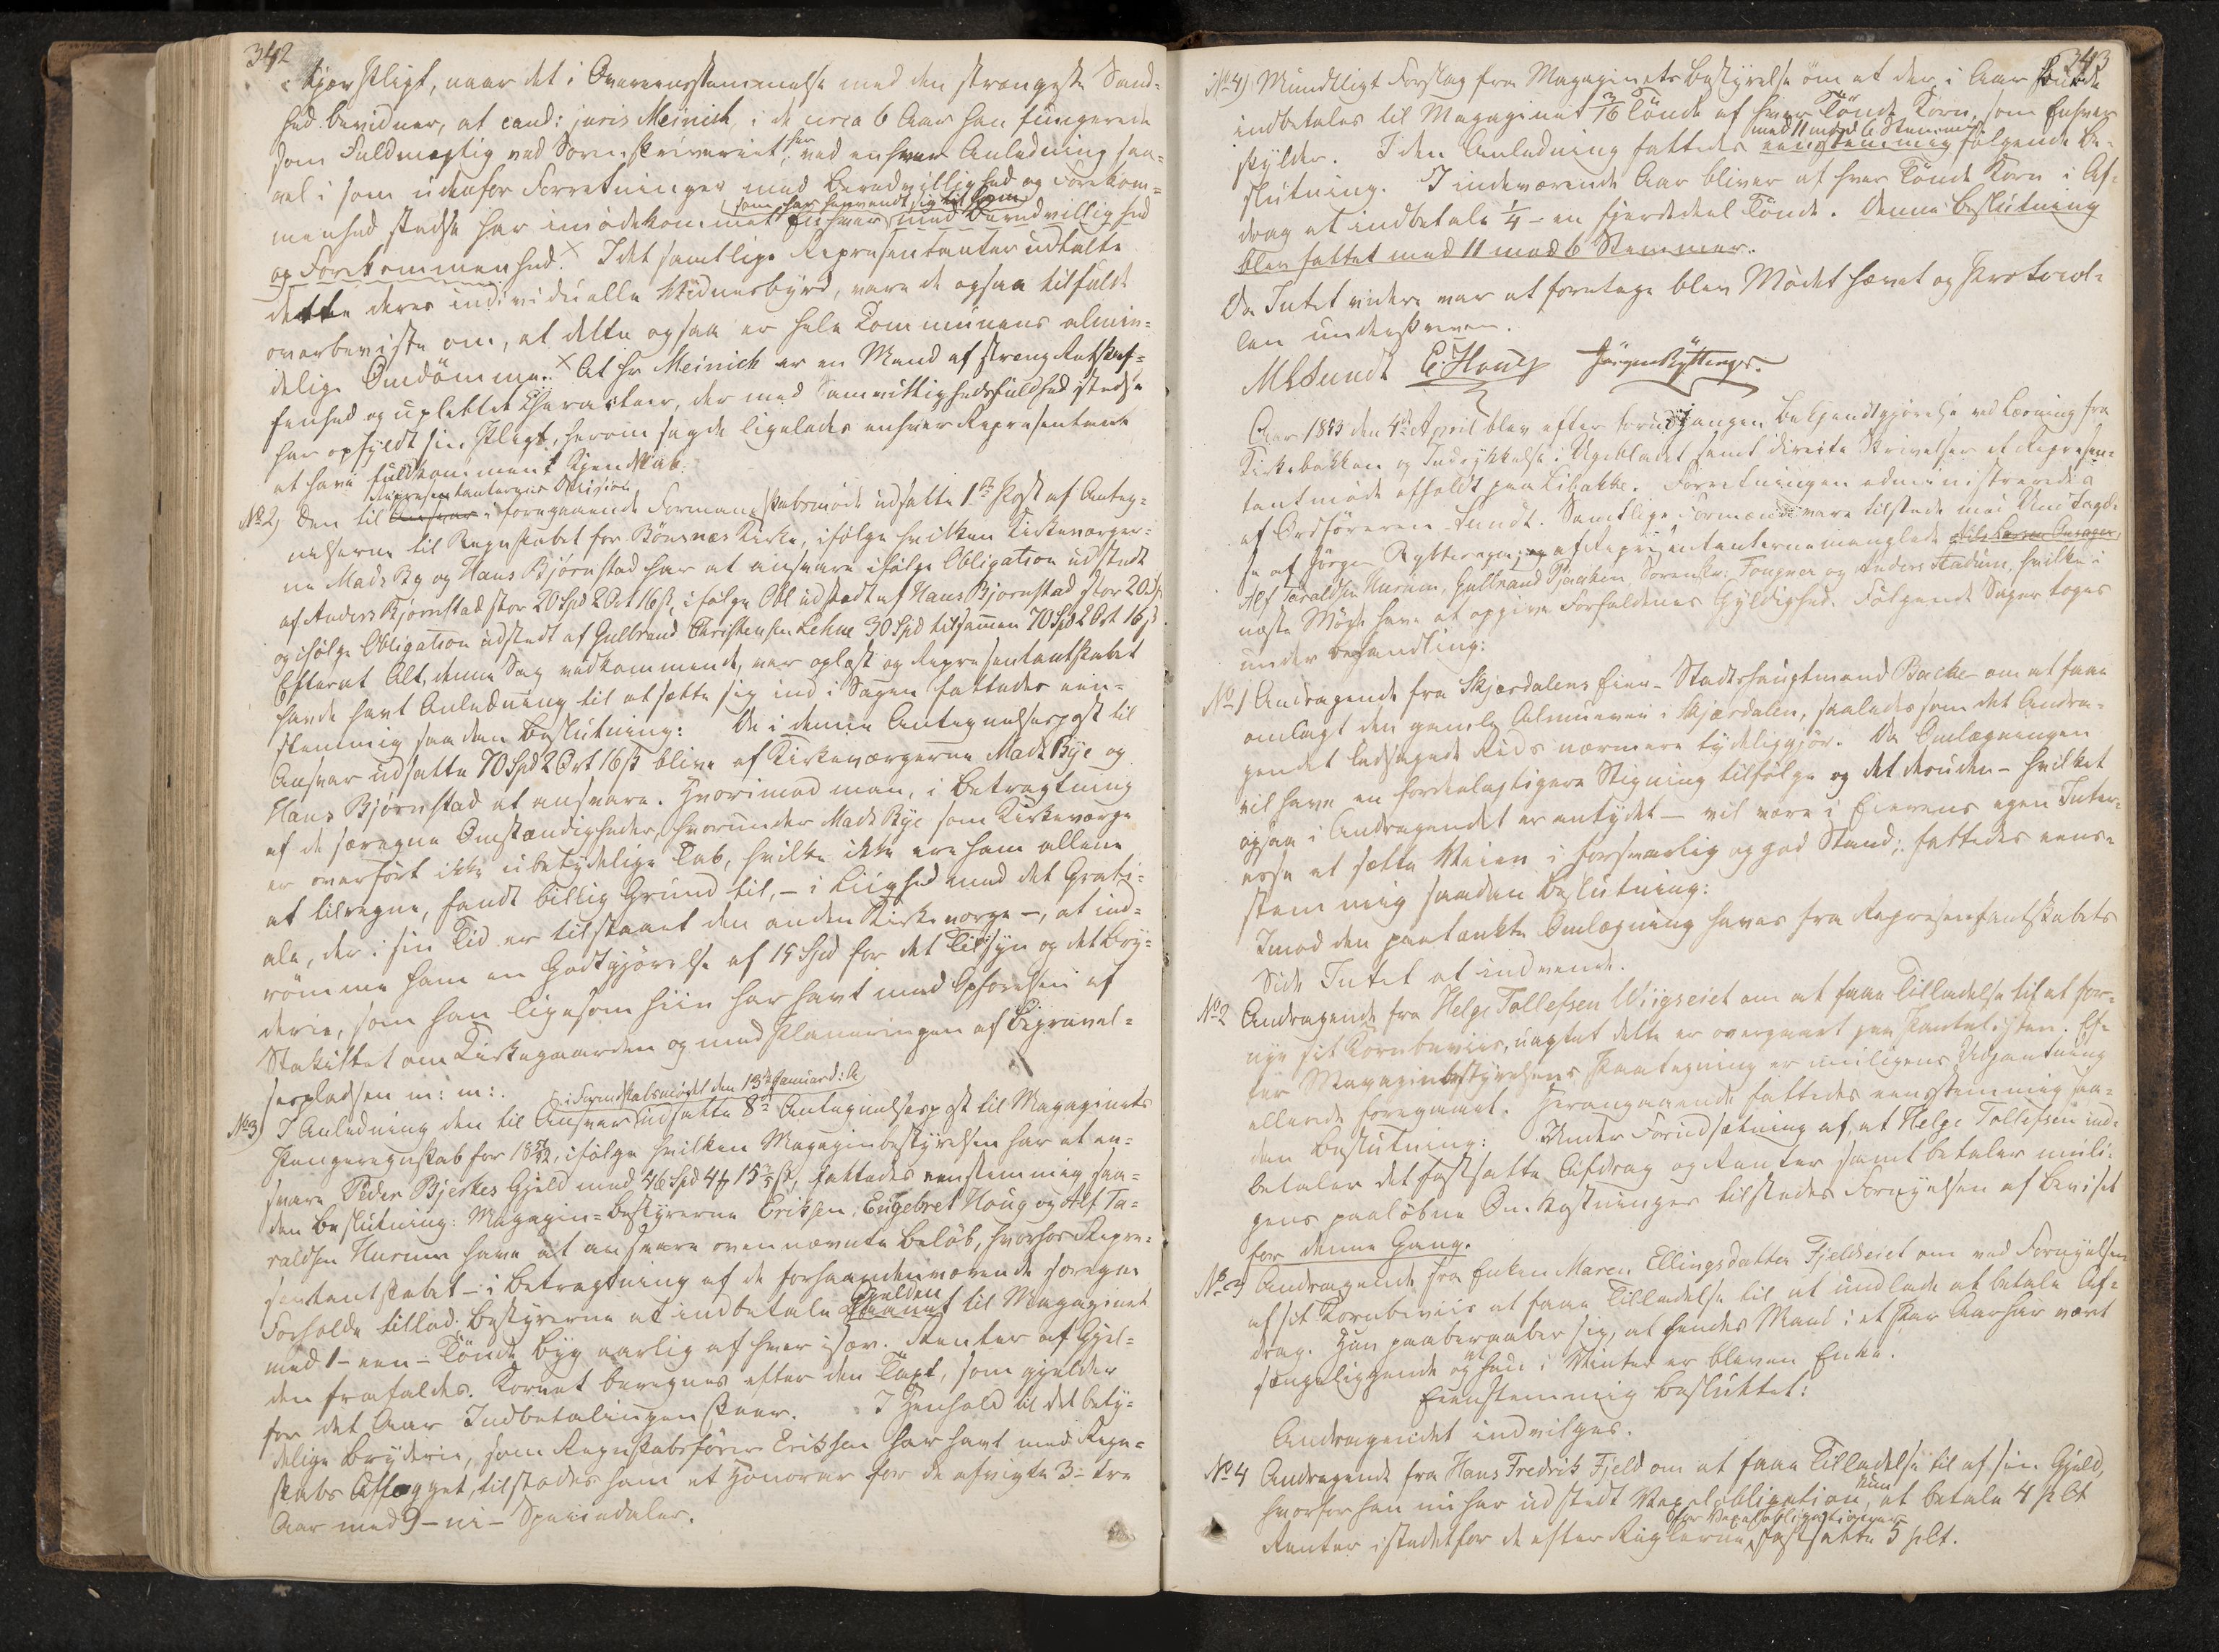 342
kjær Pligt, naar det i Overeensstemmelse med den strængeste Sand-
hed bevidner, at cand: juris Meinich, i de circa 6 Aar han fungerede
som Fuldmægtig ved Sorenskriveriet, har ved enhver Anledning saa-
vel i som udenfor Forretninger med Beredvillighed og Forekom-
menhed stedse har imödekommet Enhver (som har henvendt sig til ham) med Beredvillighed
og Forekommenhed. × Idet samtlige Repræsentanter udtalte
dette deres individuelle Vidnesbyrd, vare de ogsaa tilfulde
overbeviste om, at dette ogsaa er hele Kommunens almin-
delige Omdömme. × At Hr Meinich er en Mand af streng Retskaf-
fenhed og uplettet Character, der med Samvittighedsfuldhed stedse
har opfyldt sin Pligt, herom sagde ligeledes enhver Repræsentant
at have fuldkomment Kjendskab.
No 2) Den til Ansvar Repræsentanternes Decision i foregaaende Formandskabsmöde udsatte 1ste Post af Anteg-
nelserne til Regnskabet for Bönsnæs Kirke, ifölge hvilken Kirkeværger-
ne Mads By og Hans Bjørnstad har at ansvare ifölge Obligation udstedt
af Anders Bjørnstad stor 20 Spd 2 Ort 16 ß, ifölge Obl udstedt af Hans Bjørnstad stor 20 Sp
og ifölge Obligation udstedt af Gulbrand Christensen Lehne 30 Spd tilsammen 70 Spd 2 Ort 16 ß.
Efterat Alt, denne Sag vedkommende, var oplæst og Repræsentantskabet
havde havt Anledning til at sætte sig ind i Sagen fattedes een-
stemmig saadan Beslutning: De i denne Antegnelsespost til
Ansvar udsatte 70 Spd 2 Ort 16 ß blive af Kirkeværgerne Mads Bye og
Hans Bjørnstad at ansvare. Hvorimod man, i Betragtning
af de særegne Omstændigheder, hvorunder Mads Bye som Kirkeværge
er overfört ikke ubetydelige Tab, hvilke ikke ere ham allene
at tilregne, fandt billig Grund til, – i Liighed med det Grati-
ale, der i sin Tid er tilstaaet den anden Kirkeværge –, at ind-
römme ham en Godtgjörelse af 15 Spd for det Tilsyn og det Bry-
derie, som han ligesom hiin har havt med Opförelsen af
Stakittet om Kirkegaarden og med Planeringen af Begravel-
sespladsen m: m:.
No 3) I Anledning den til Ansvar i Formdskabsmödet den 13de Januar d: A udsatte 8de Antegnelsespost til Magazinets
Pengeregnskab for 1851/52, ifölge hvilken Magazinbestyrelsen har at an-
svare Peder Bjerkes Gjeld med 46 Spd 4 ß 15 3/5 ß, fattedes eenstemmig saa-
dan Beslutning: Magazin-Bestyrerne Eriksen, Engebret Houg og Alf Ta-
raldsen Hurum have at ansvare ovennævnte Belöb, hvorhos Repræ-
sentantskabet – i Betragtning af de forhaandenværende særegne
Forholde tillod Bestyrerne at indbetale Gjelden til Magazinet
med 1 – een – Tönde Byg aarlig af hver især. Renter af Gjel-
den frafaldes. Kornet beregnes efter den Taxt, som gjelder
for det Aar Indbetalingen skeer. I Henhold til det bety-
delige Bryderie, som Regnskabsförer Eriksen har havt med Regn-
skabs Aflægget, tilstodes ham et Honorar for de afvigte 3- tre
Aar med 9 – ni – Speciedaler.
343
No 4) Mundtligt Forslag fra Magazinets Bestyrelse om at der i Aar skulde
indbetales til Magazinet 3/16 Tönde af hver Tönde Korn, som Enhver
skylder. I den Anledning fattedes eenstemmig med 11 mod 6 Stemmer fölgende Be-
slutning. I indeværende Aar bliver af hver Tönde Korn i Af-
drag at indbetale 1/4 – en fjerdedeel Tönde. Denne Beslutning
blev fattet med 11 mod 6 Stemmer.
Da Intet videre var at foretage blev Mödet hævet og Protocol-
len underskreven.
M Lundt E: Houg Jörgen Rytterager.
Aar 1853 den 4de April blev efter forudgangen Bekjendtgjörelse ved Læsning fra
Kirkebakken og Indrykkelse i Ugebladet samt directe Skrivelser et Repræsen-
tantmöde afholdt paa Libakke. Forretningen administreredes
af Ordföreren Lundt. Samtlige Formænd vare tilstede med Undtagel-
se af Jörgen Rytterager; og af Repræsentanterne manglede Nils Larsen Onsager,
Alf Taraldsen Hurum, Gulbrand Tjaaken, Sorenskr: Fougner og Anders Stadum, hvilke i
næste Möde have at opgive Forfaldenes Gyldighed. Fölgende Sager toges
under Behandling:
No 1 Andragende fra Skjærdalens Eier – Stadshauptmand Backe – om at faae
omlagt den gamle Almuevei i Skjærdalen, saaledes som det Andra-
gendet ledsagede Rids nærmere tydeliggjör. Da Omlægningen
vil have en fordeelagtigere Stigning tilfölge og det desuden – hvilket
ogsaa i Andragendet er antydet – vil være i Eierens egen Inter-
esse at sætte Veien i forsvarlig og god Stand; fattedes eens-
stemmig saadan Beslutning:
Imod den paatænkte Omlægning haves fra Repræsentantskabets
Side Intet at indvende.
No 2 Andragende fra Helge Tollefsen Wiigseiet om at faae Tilladelse til at for-
nye sit Kornbeviis, uagtet dette er overgaaet paa Pantelisten. Ef-
ter Magazinbestyrelsens Paategning er muligens Udpantning
allerede foregaaet. Herangaaende fattedes eenstemmig saa-
dan Beslutning: Under Forudsætning af, at Helge Tollefsen ind-
betaler det fastsatte Afdrag og Renter samt betaler muli-
gens paalöbne Omkostninger tilstedes Fornyelsen af Beviset
for denne Gang.
No 3 Andragende fra Enken Maren Ellingsdatter Fjeldseiet om ved Fornyelsen
af sit Kornbeviis at faae Tilladelse til at undlade at betale Af-
drag. Hun paaberaaber sig, at hendes Mand i et Par Aar har vært
sengeliggende og at hun i Vinter er bleven Enke.
Eenstemmig besluttet:
Andragendet indvilges.
No 4 Andragende fra Hans Fredrik Fjeld om at faae Tilladelse til af sin Gjeld,
hvorfor han nu har udstedt Vexelobligation, kun at betale 4 pCt
Renter istedetfor de efter Reglerne for Vexelobligationer fastsatte 5 pCt.